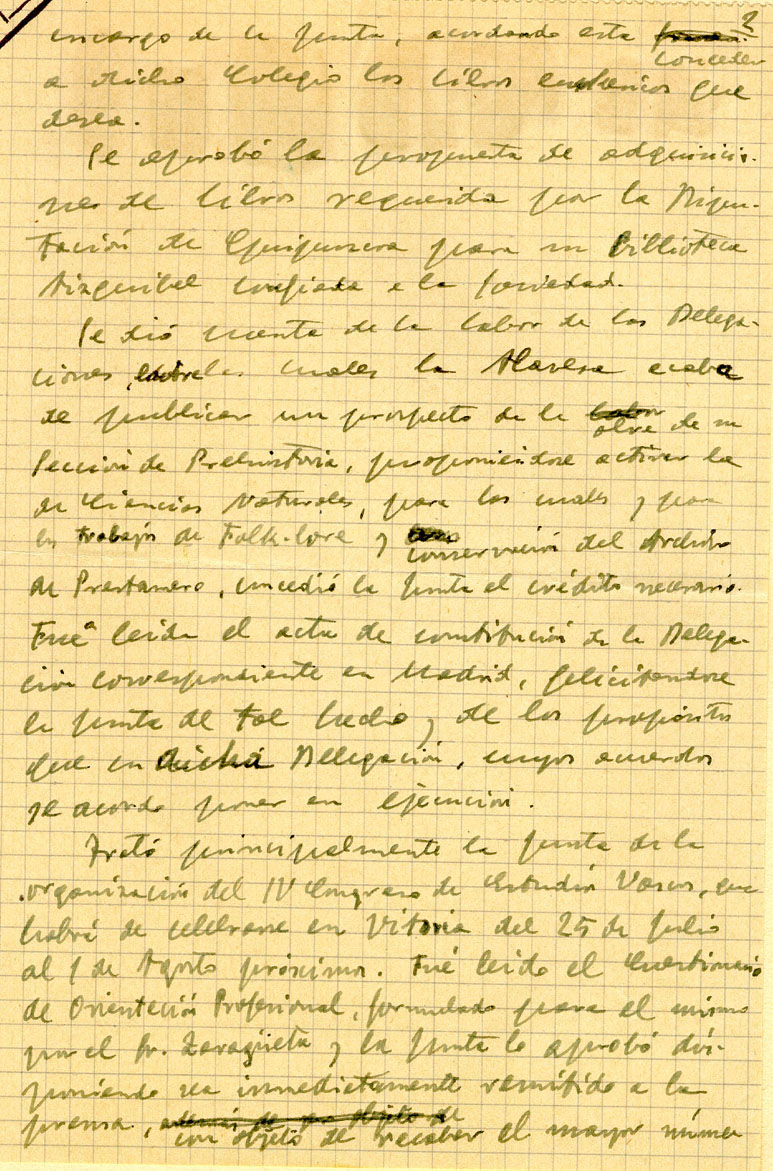 2
encargo de la Junta, acordando esta
conceder
a dicho Colegio los libros euskericos que
desea.
Se aprobó la propuesta de adquisicio-
nes de libros requerida por la Dipu-
tación de Guipuzcoa para su Biblioteca
Aizquibel confiada a la Sociedad.
Se dió cuenta de la labor de las Delega-
ciones, entre las cuales la Alavesa acaba
de publicar un prospecto de la labor
obra de su
Sección de Prehistoria, proponiéndose activar la
de Ciencias Naturales, para las cuales y para
los trabajos de Folk-lore y
conservación del Archivo
de Prestamero, concedió la Junta el crédito necesario.
Fué leida el acta de constitución de la Delega-
ción correspondiente en Madrid, felicitandose
la Junta de tal hecho y de los propósitos
que en dicha Delegación, cuyos acuerdos
se acordo poner en ejecución.
Trató principalmente la Junta de la
organización del IV Congreso de Estudios Vascos, que
habrá de celebrarse en Vitoria del 25 de Julio
al 1 de Agosto próximos. Fué leido el Cuestionario
de Orientación Profesional, formulado para el mismo
por el Sr. Zaragüeta y la Junta lo aprobó dis-
poniendo sea inmediatamente remitido a la
prensa, además de por objeto de
con objeto de recabar el mayor núme